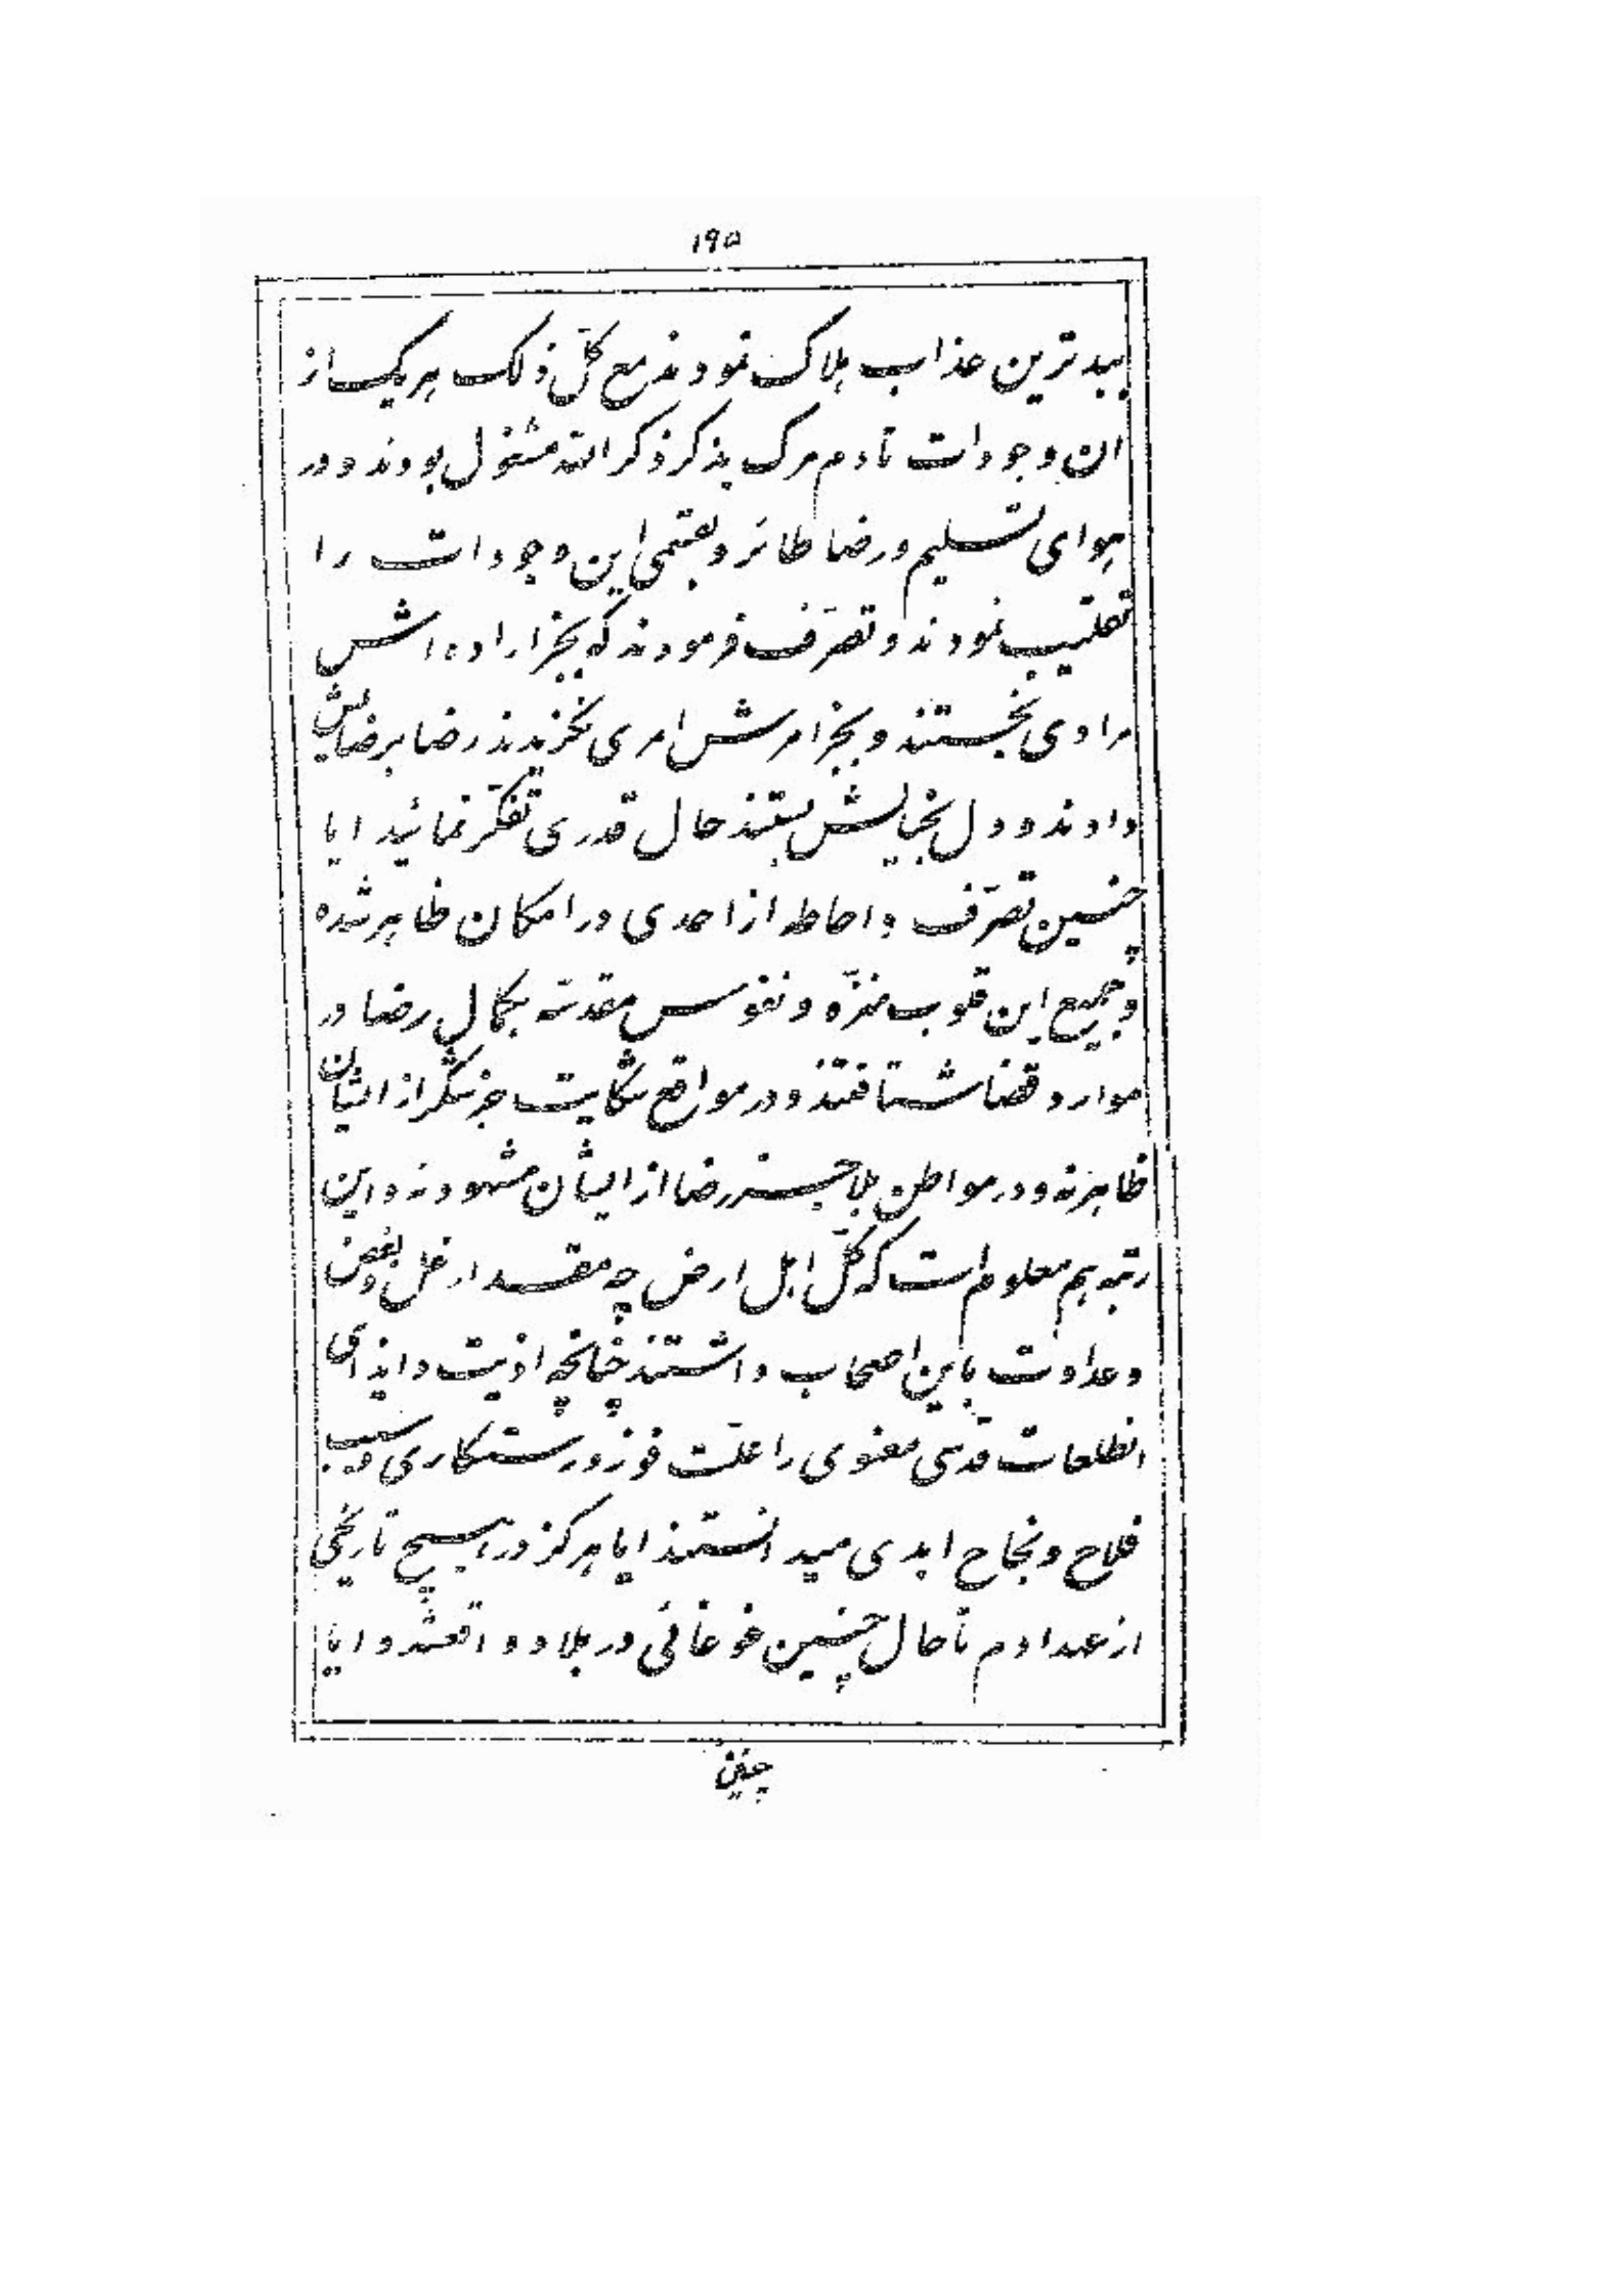 ۱۹۵
ببدترین عذاب هلاک نمودند مع کلّ ذلک هر یک از
ان وجودات تا دم مرک بذکر ذکر الله مشغول بودند و در
هوای تسلیم و رضا طائر و بقسمی این وجودات را
تقلیب نمودند و تصرّف فرمودند که بجز اراده اش
مرادی نجستند و بجز امرش امری نکزیدند رضا برضایش
دادند و دل بخیالش بستند حال قدری تفکّر نمائید ایا
چنین تصرّف و احاطه از احدی در امکان ظاهر شده
و جمیع این قلوب منزّه و نفوس مقدّسه بکمال رضا در
موارد قضا شتافتند و در مواقع شکایت جز شکر از ایشان
ظاهر نه و در مواطن بلا جز رضا از ایشان مشهود نه و این
رتبه هم معلوم است که کلّ اهل ارض چه مقدار غل و بغض
و عداوت باین اصحاب داشتند چنانچه اذیت و ایذای
انطلعات قدسی معنوی را علّت فوز و رستکاری و سبب
فلاح و نجاح ابدی میدانستند ایا هرکز در هیچ تاریخی
از عهد ادم تا حال چنین غوغائی در بلاد واقع شد و ایا
چنین